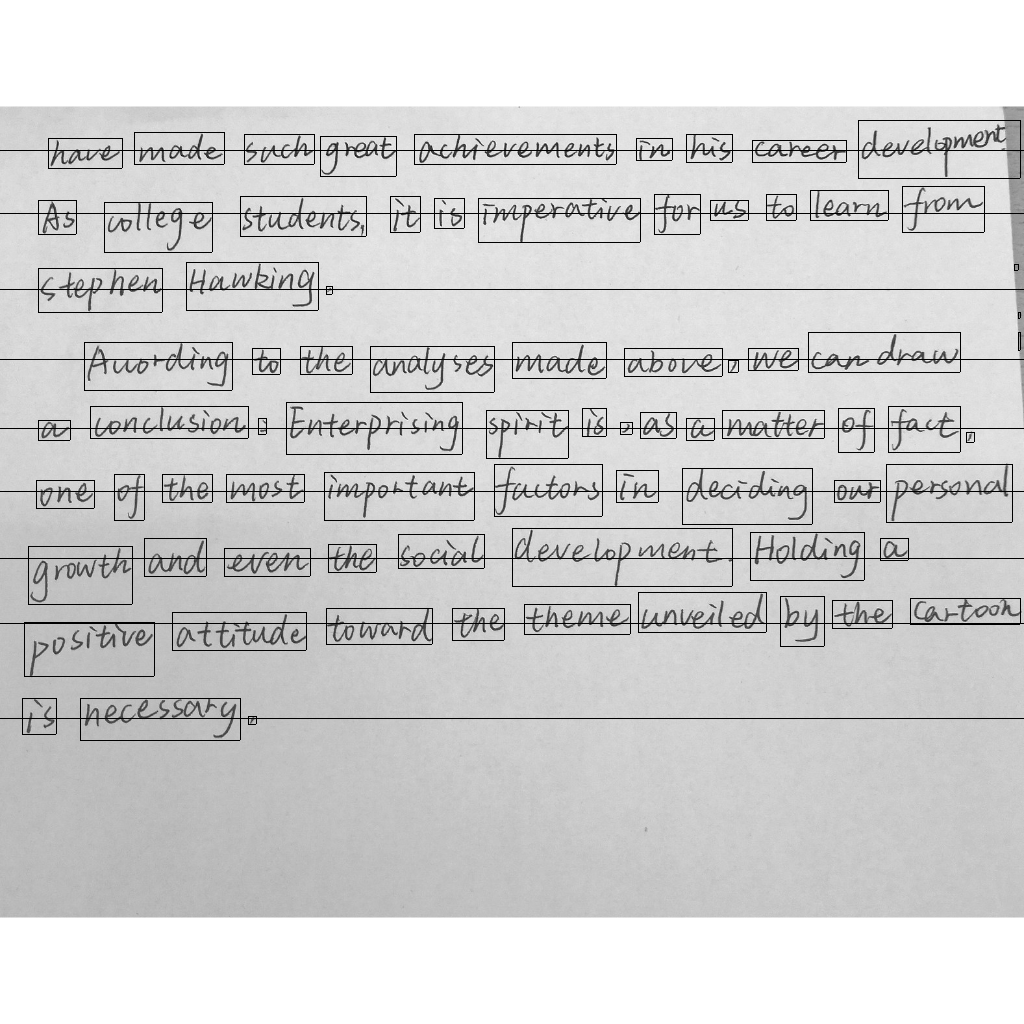 have made such great achievements in his career development
As college students, it is imperative for us to learn from
stephen Hawking.
Auording to the analyses made above, we can draw
a conclusion: Enterprising spirit is, as a matter of fact,
one of the most important factors in deciding our personal
growth and even the social development. Holding a
positive attitude toward the theme unveiled by the cartoon
is necessary.